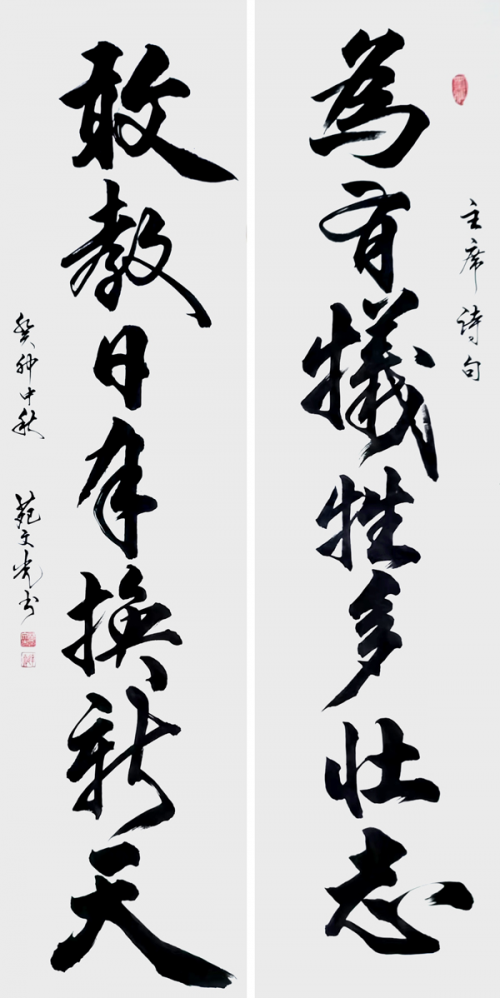 主席诗句
為有犧牲多壮志
敢教日月换新天
癸卯中秋 苑文光书